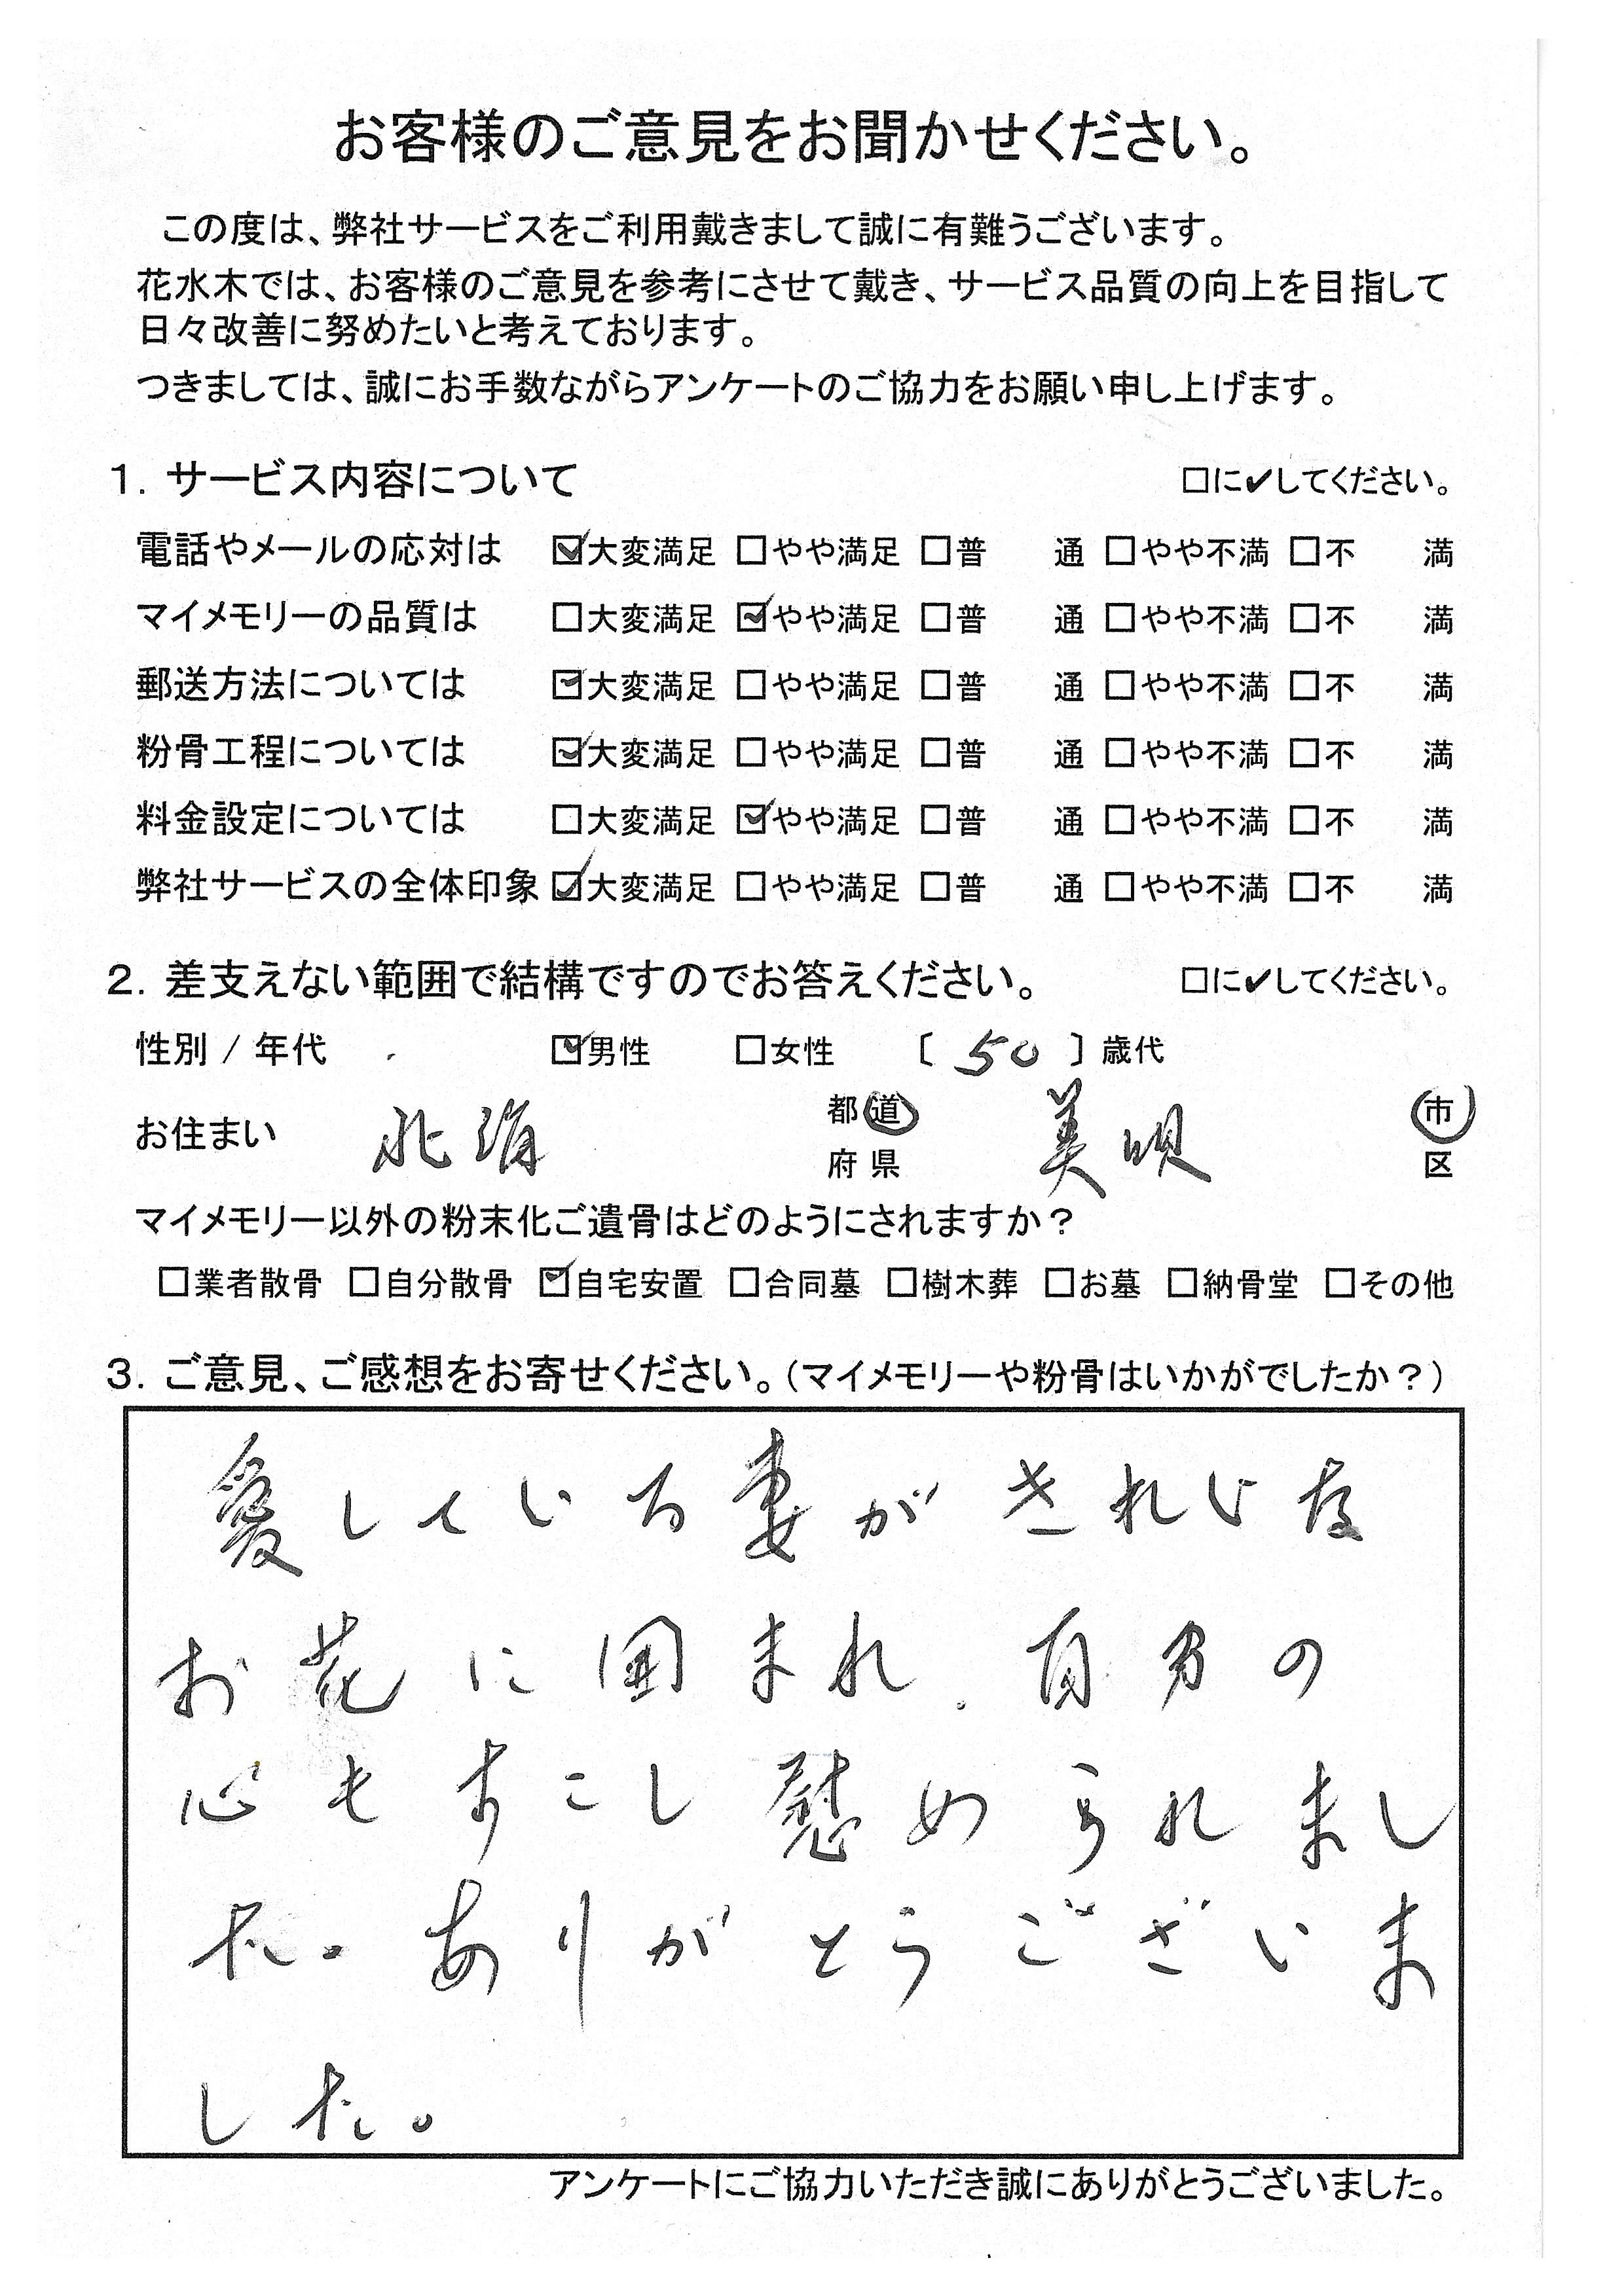 お客様のご意見をお聞かせください。
この度は、弊社サービスをご利用戴きまして誠に有難うございます。
花水木では、お客様のご意見を参考にさせて戴き、サービス品質の向上を目指して
日々改善に努めたいと考えております。
つきましては、誠にお手数ながらアンケートのご協力をお願い申し上げます。
1. サービス内容について □に✔してください。
電話やメールの応対は ☑大変満足 □やや満足 □普 通 □やや不満 □不 満
マイメモリーの品質は □大変満足 ☑やや満足 □普 通 □やや不満 □不 満
郵送方法については ☑大変満足 □やや満足 □普 通 □やや不満 □不 満
粉骨工程については ☑大変満足 □やや満足 □普 通 □やや不満 □不 満
料金設定については □大変満足 ☑やや満足 □普 通 □やや不満 □不 満
弊社サービスの全体印象 ☑大変満足 □やや満足 □普 通 □やや不満 □不 満
2. 差支えない範囲で結構ですのでお答えください。 □に✔してください。
性別 / 年代 ☑男性 □女性 〔 50 〕歳代
お住まい 北海 都道府県 美唄 市区
マイメモリー以外の粉末化ご遺骨はどのようにされますか？
□業者散骨 □自分散骨 ☑自宅安置 □合同墓 □樹木葬 □お墓 □納骨堂 □その他
3. ご意見、ご感想をお寄せください。（マイメモリーや粉骨はいかがでしたか？）
愛している妻がきれいな
お花に囲まれ、自分の
心もすこし慰められまし
た。ありがとうございま
した。
アンケートにご協力いただき誠にありがとうございました。